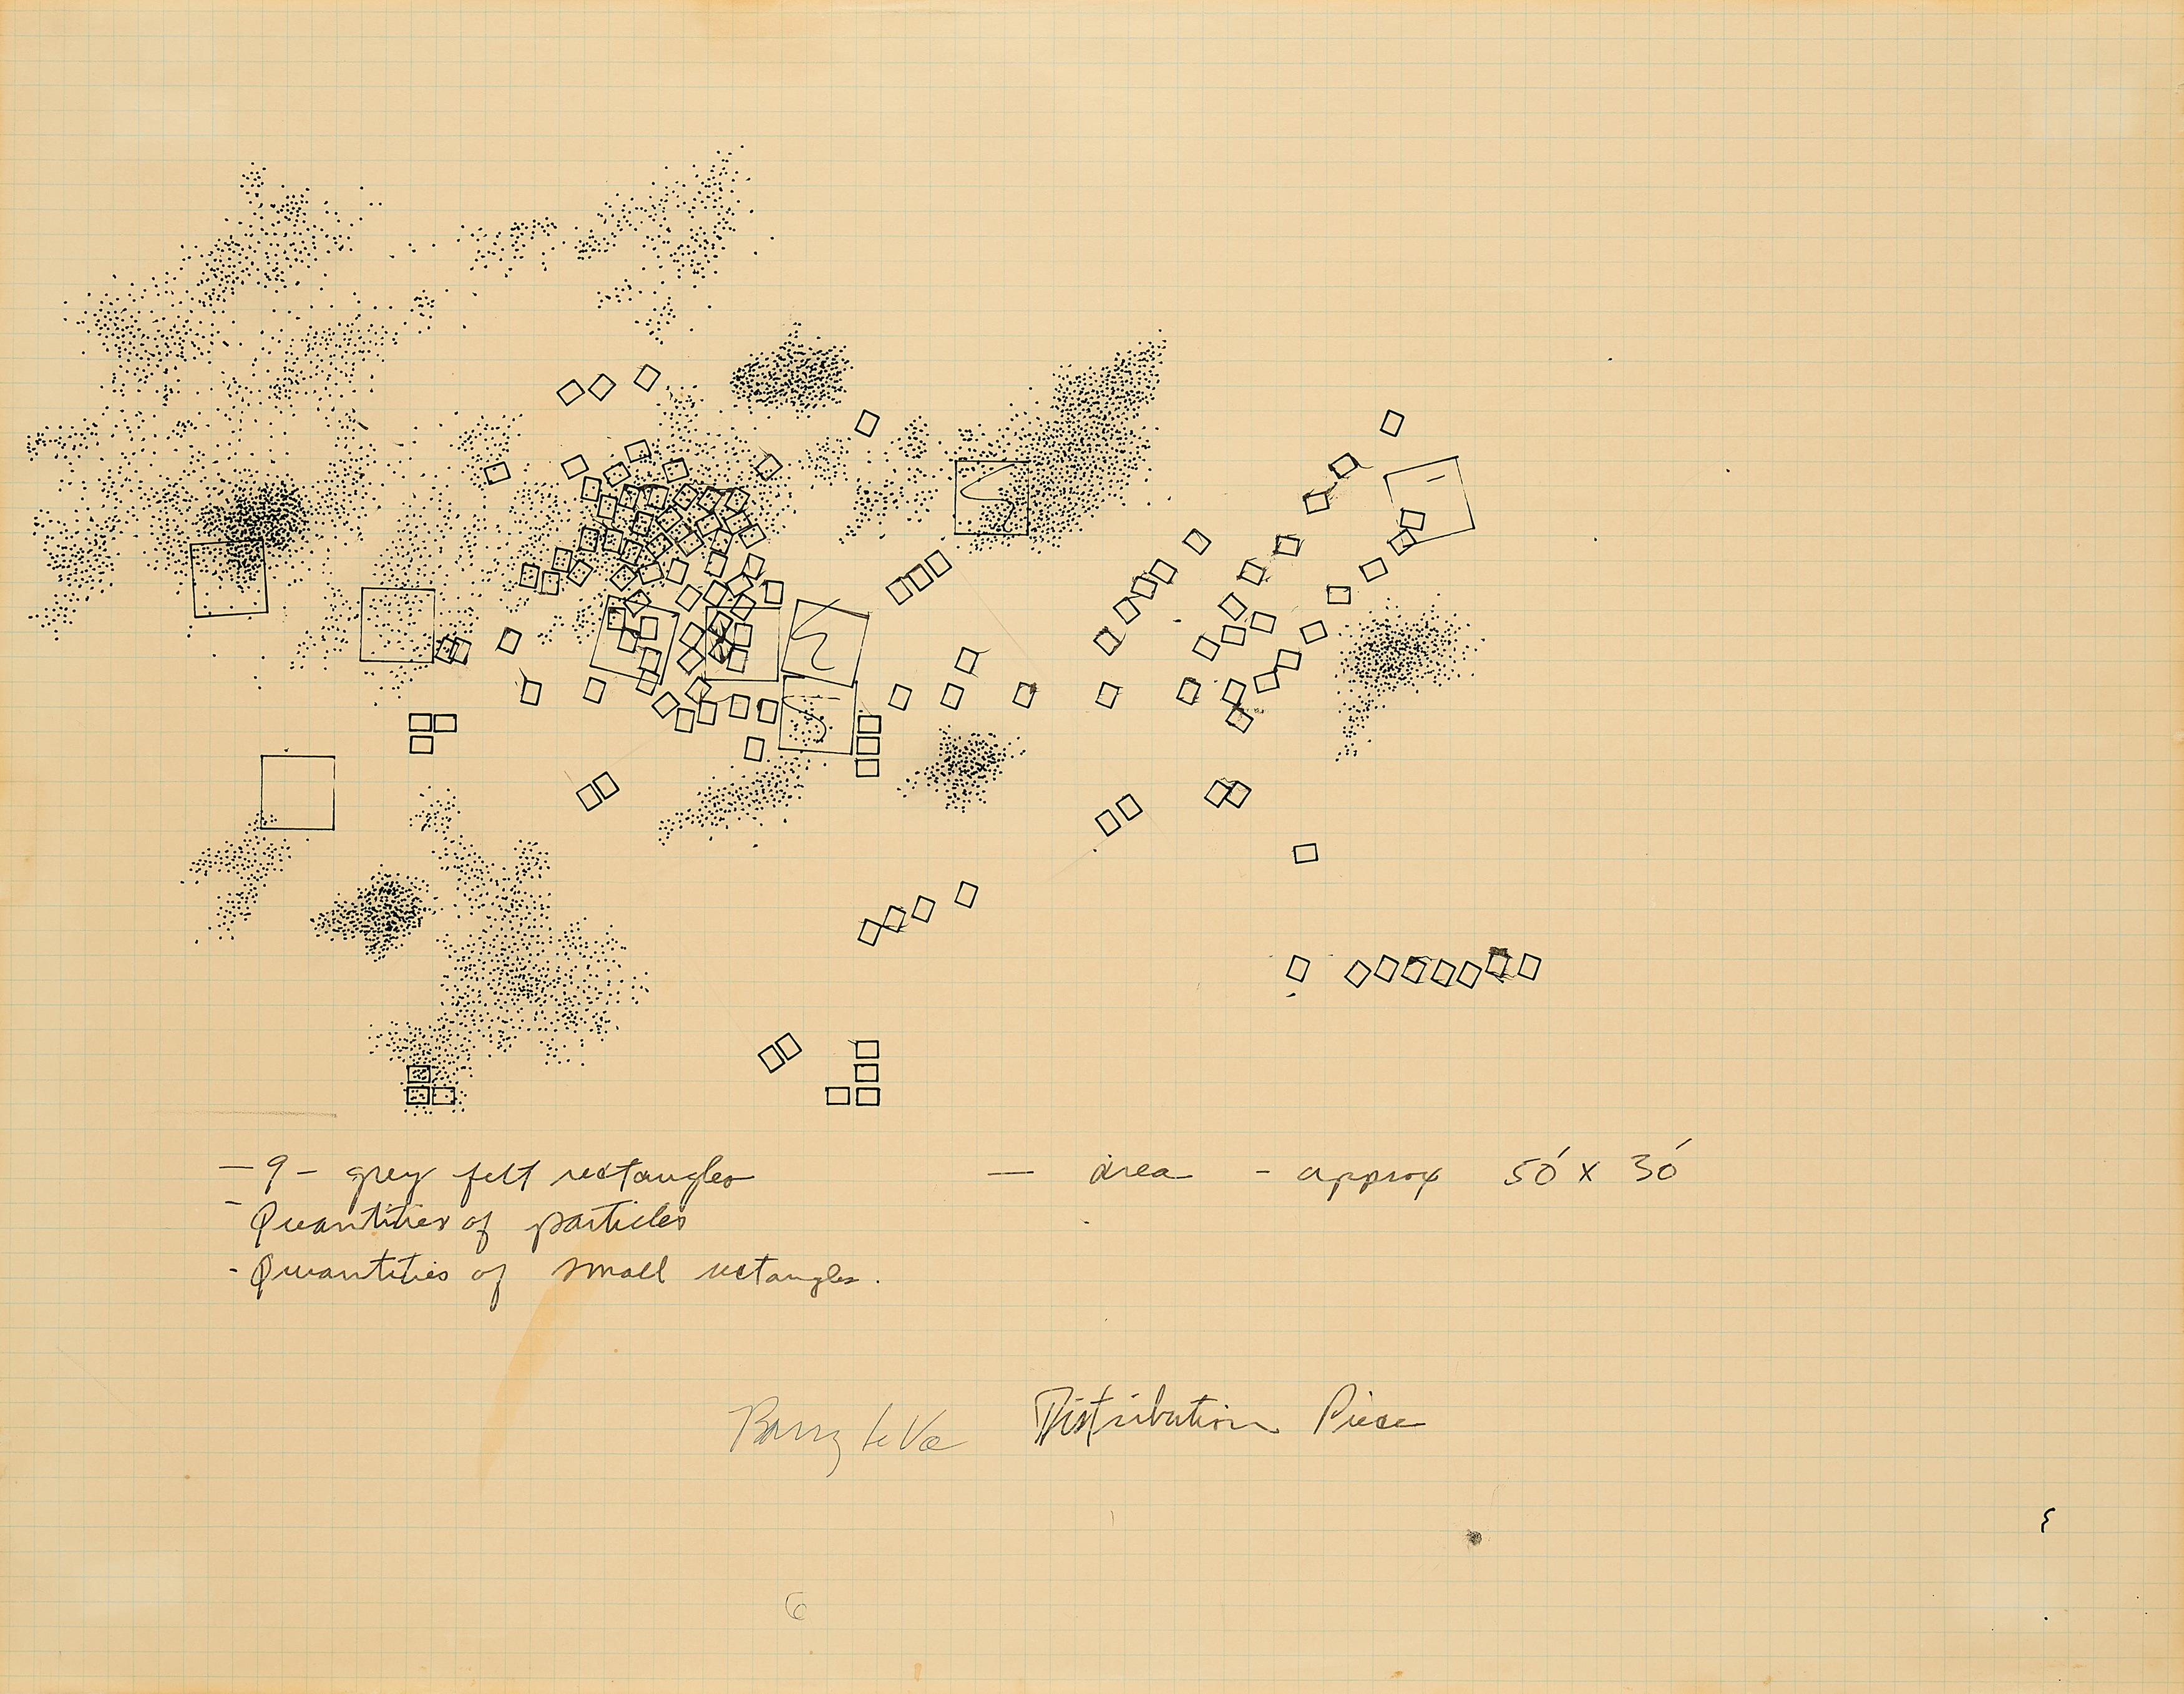 — 9 – grey felt rectangles
- Quantities of particles
- Quantities of small rectangles.
— area - approx 50' x 30'
Barry Le Va Distribution Piece
6